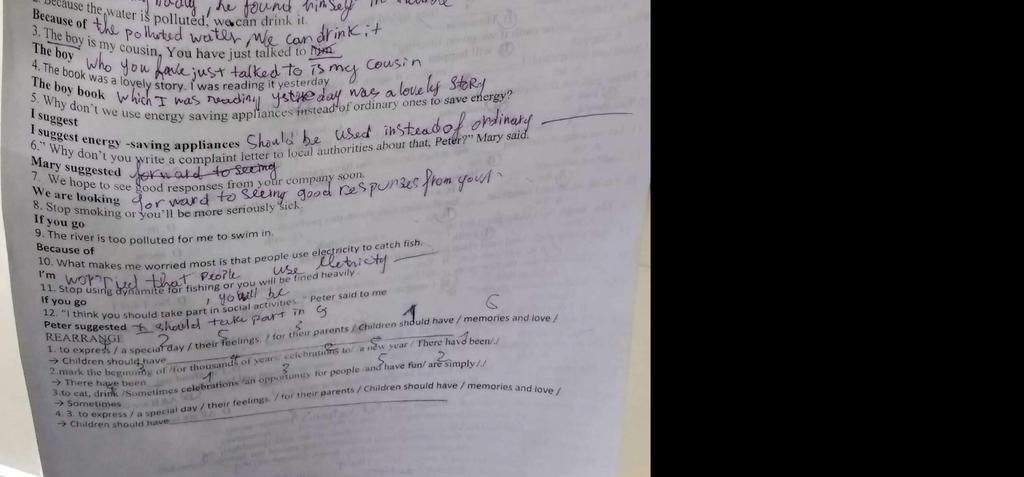 he found himself in
2. Because the water is polluted, we can drink it.
Because of the polluted water, We can drink it
3. The boy is my cousin, You have just talked to him
The boy Who you have just talked to is my cousin
4. The book was a lovely story. I was reading it yesterday
The boy book which I was reading yesterday was a lovely Story
5. Why don't we use energy saving appliances instead of ordinary ones to save energy?
I suggest
I suggest energy -saving appliances Should be used instead of ordinary
6." Why don't you write a complaint letter to local authorities about that, Peter?" Mary said.
Mary suggested forward to seeing
7. We hope to see good responses from your company soon.
We are looking forward to seeing good responses from your
8. Stop smoking or you'll be more seriously sick.
If you go
9. The river is too polluted for me to swim in.
Because of
10. What makes me worried most is that people use electricity to catch fish.
I'm worried that people use
11. Stop using dynamite for fishing or you will be fined heavily.
If you go , you'll be
12. "I think you should take part in social activities." Peter said to me
Peter suggested I should take part in
REARRANGE
1. to express / a special day / their feelings. / for their parents / Children should have / memories and love /
→ Children should have
2.mark the beginning of /for thousands of years/ celebrations to/ a new year / There have been/./
→ There have been
3.to eat, drink /Sometimes celebrations /an opportunity for people /and have fun/ are simply/./
→ Sometimes
4. 3. to express / a special day / their feelings. / for their parents / Children should have / memories and love /
→ Children should have